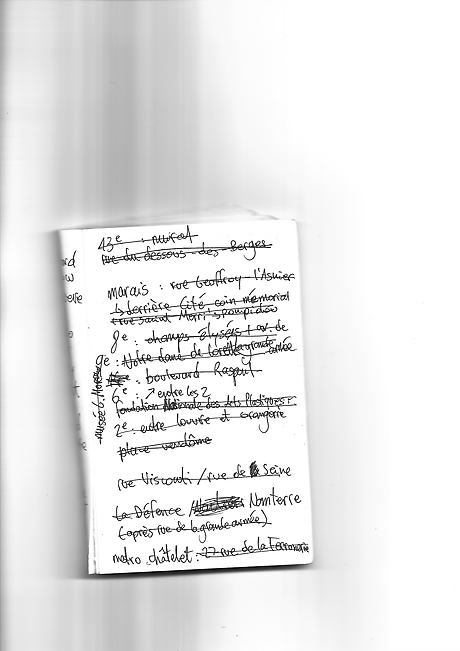 13e :
rue du dessous-des Berges
marais : rue Geoffroy l'Asnier
↳ derrière Cité, coin mémorial
+ rue Saint Merri's pompidou
8e : champs élysées + av. de
la grande armée
9e : Notre dame de lorette
e : boulevard Raspail
6e : ↗ entre les 2
Fondation Nationale des Arts Plastiques
2e : entre louvre et orangerie
place vendôme
rue Visconti / rue de Seine
La Défence / Nanterre
(après rue de la grande armée)
metro châtelet : 27 rue de la Ferronnerie
Musée